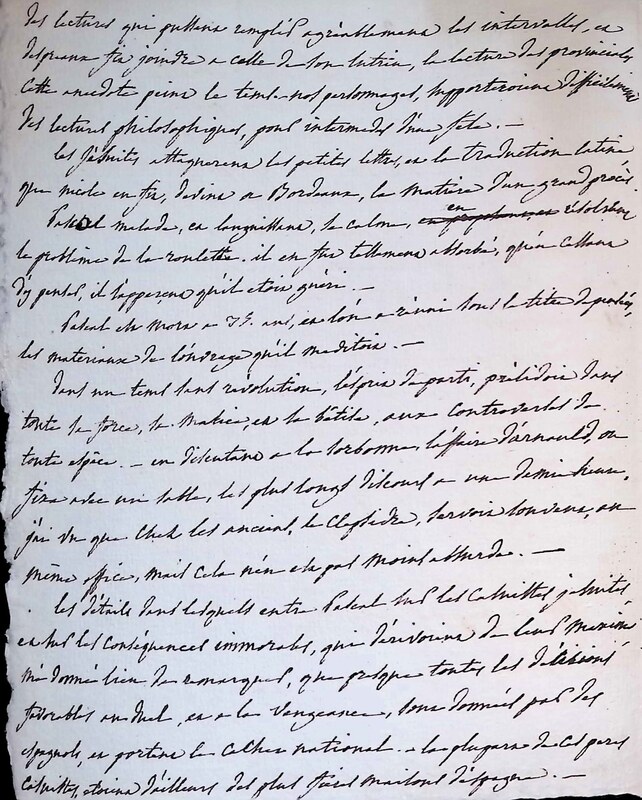 des lectures qui pussent remplir agréablement les intervalles, et
despreaux fit joindre a celle de son lutrin, la lecture des provinciales
Cette anecdote peint le tems. nos personnages, supporteroient difficilement
des lectures philosophiques, pour intermedes d'une fête. —
les jésuites attaquerent les petites lettres, et la traduction latine
que nicole en fit, devint a Bordeaux, la matière d'un grand procès
Pascal malade, et languissant, se calma, en résolvant
le problème de la roulette. il en fut tellement absorbé, qu'en cessant
d'y penser, il s'apperçut qu'il étoit guéri. —
Pascal est mort a 39. ans, et l'on a réuni sous le titre de pensées,
les materiaux de l'ouvrage qu'il meditoit. —
dans un tems sans révolution, l'esprit de parti, présidoit dans
toute sa force, sa malice, et sa bêtise, aux controverses de
toute espèce. — en discutant a la sorbonne, l'affaire d'arnauld, on
fixa avec un sable, les plus longs discours a une demie heure,
j'ai vu que chez les anciens, le Clepsidre, servoit souvent, au
même office, mais cela n'en est pas moins absurde. —
les détails dans lesquels entre Pascal sur les Casuistes jesuites
et sur les conséquences immorales, qui dérivoient de leurs maximes
m'a donné lieu de remarquer, que presque toutes les décisions
favorables au duel, et a la vengeance, sont données par des
espagnols, et portent le cachet national. — la plupart de ces peres
Casuistes, etoient d'ailleurs des plus fieres maisons d'espagne. —